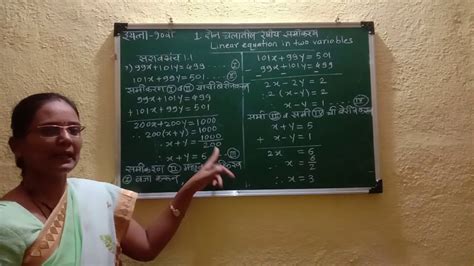 इयत्ता-१०वी 1. दोन चलातील रेषीय समीकरण
Linear equation in two variables
सरावसंच 1.1
99x+101y=499 ... I
101x+99y=501 ... II
समीकरण I व II यांची बेरीज करून
99x+101y=499
+ 101x+99y=501
200x+200y=1000
∴ 200(x+y)=1000
∴ x+y= 1000
200
∴ x+y=5 ... III
समीकरण II
I वजा करून
101x+99y=501
99x+101y=499
2x-2y=2
∴ 2(x-y)=2
∴ x-y=1 ... IV
समी III व समी IV ची बेरीज करून
x+y=5
+ x-y=1
2x =6
∴ x = 6
2
∴ x=3